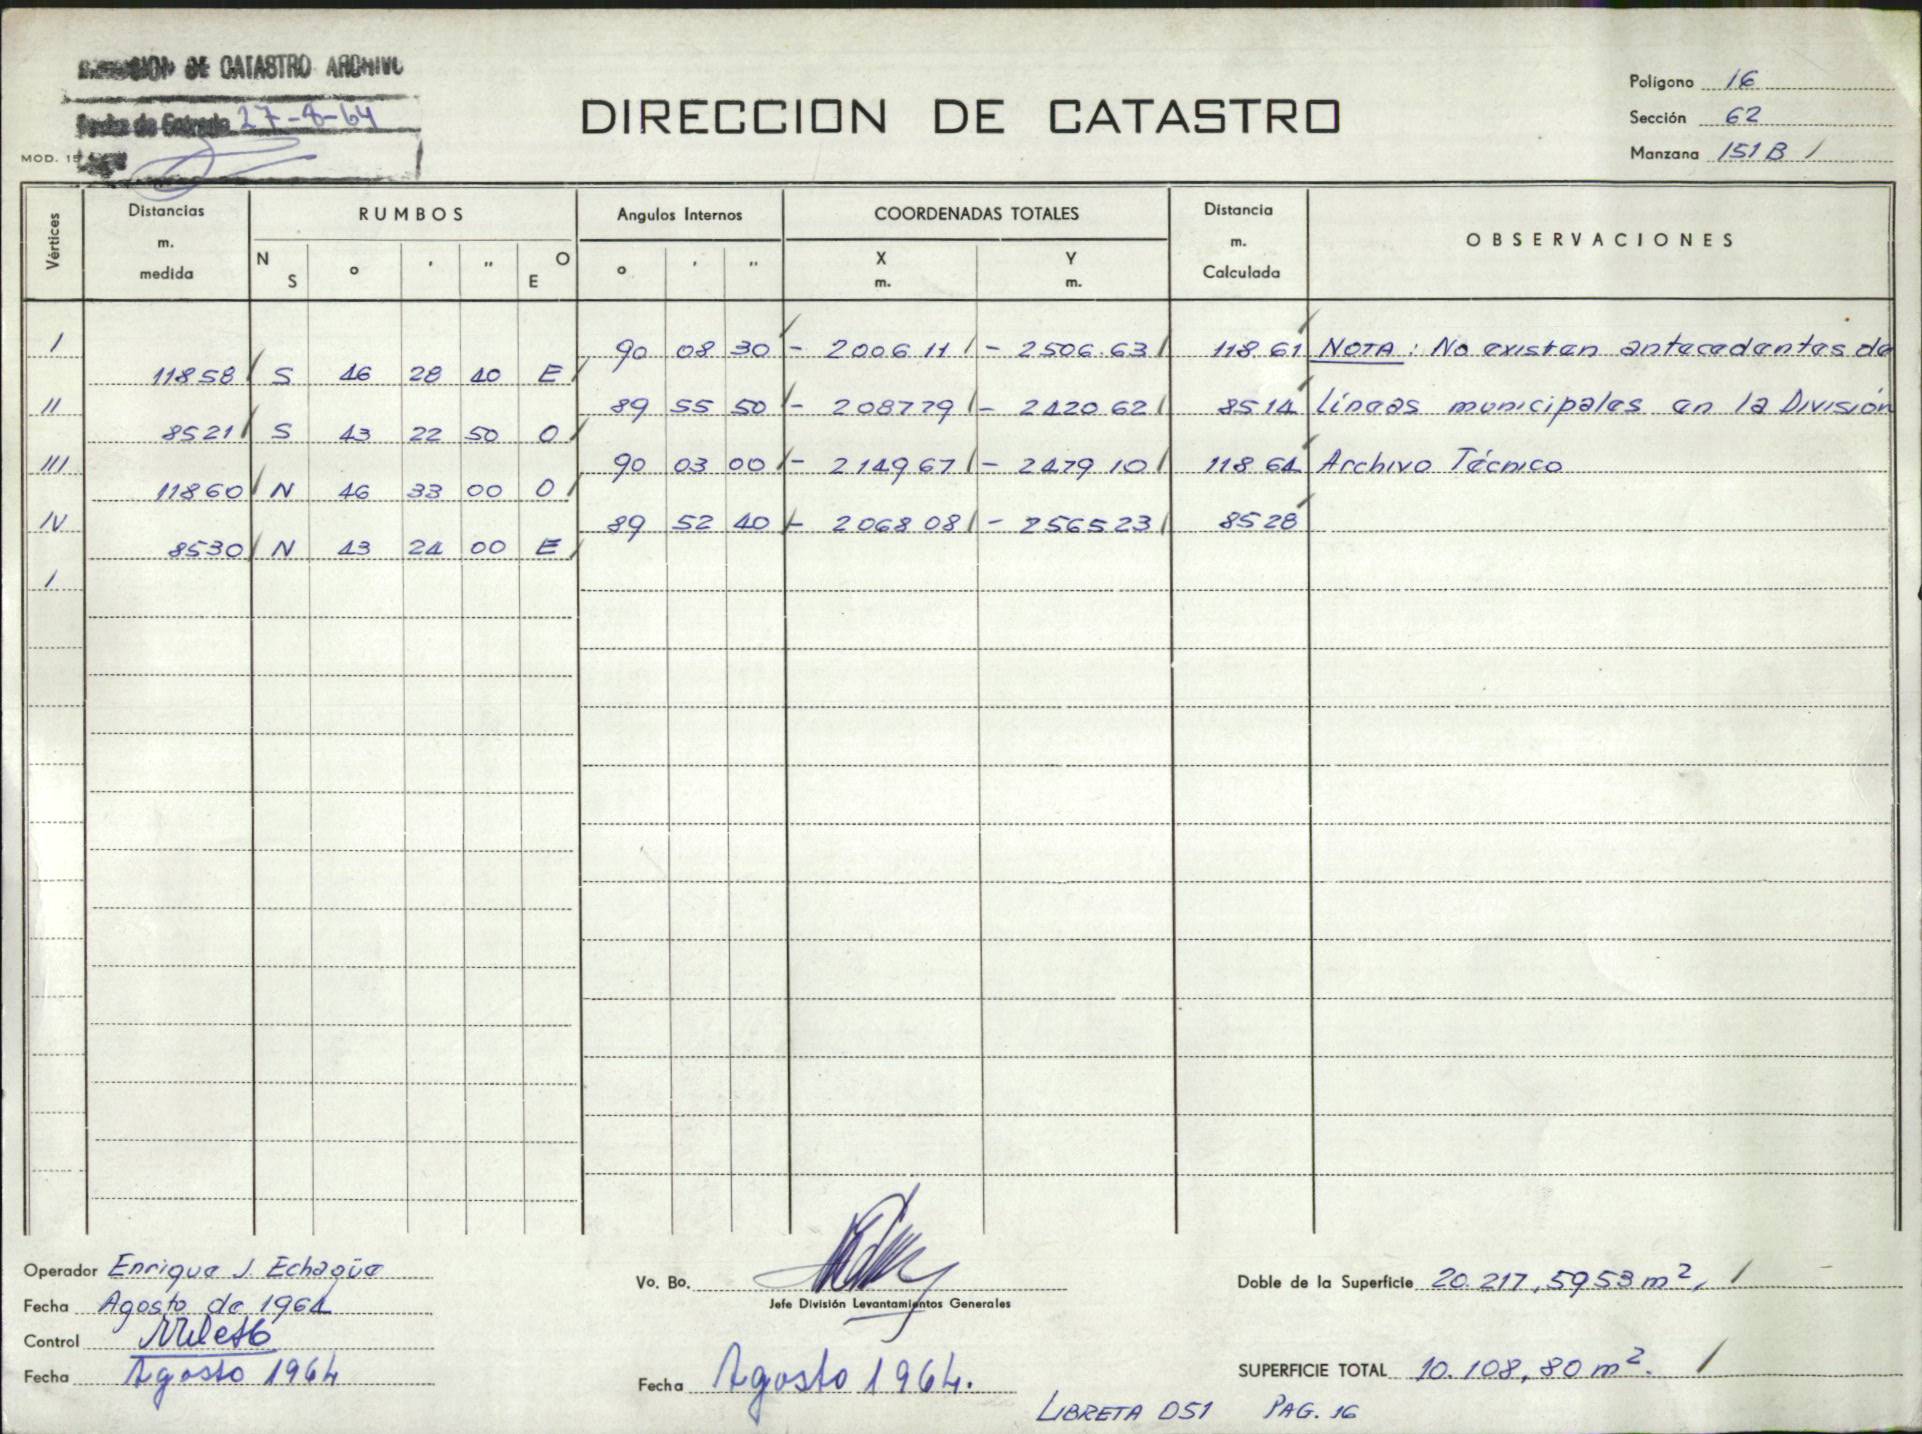 DIRECCION DE CATASTRO ARCHIVO
Fecha de Entrada 27-8-64
MOD. 15
DIRECCION DE CATASTRO
Polígono 16
Sección 62
Manzana 151 B
Vértices
Distancias m. medida
RUMBOS
N S ° ' " O E
Angulos Internos
° ' "
COORDENADAS TOTALES
X m. Y m.
Distancia m. Calculada
OBSERVACIONES
I 90 08 30 - 2006 11 - 2506.63 118 61 NOTA: No existen antecedentes de
118 58 S 46 28 40 E
II 89 55 50 - 2087 79 - 2420 62 85 14 líneas municipales en la División
85 21 S 43 22 50 O
III 90 03 00 - 2149 67 - 2479 10 118 64 Archivo Técnico
118 60 N 46 33 00 O
IV 89 52 40 - 2068 08 - 2565 23 85 28
85 30 N 43 24 00 E
I
Operador Enrique J. Echagüe
Fecha Agosto de 1964
Control
Fecha Agosto 1964
Vo. Bo.
Jefe División Levantamientos Generales
Fecha Agosto 1964.
Doble de la Superficie 20.217,5953 m2,
SUPERFICIE TOTAL 10.108,80 m2.
LIBRETA D51 PAG. 16